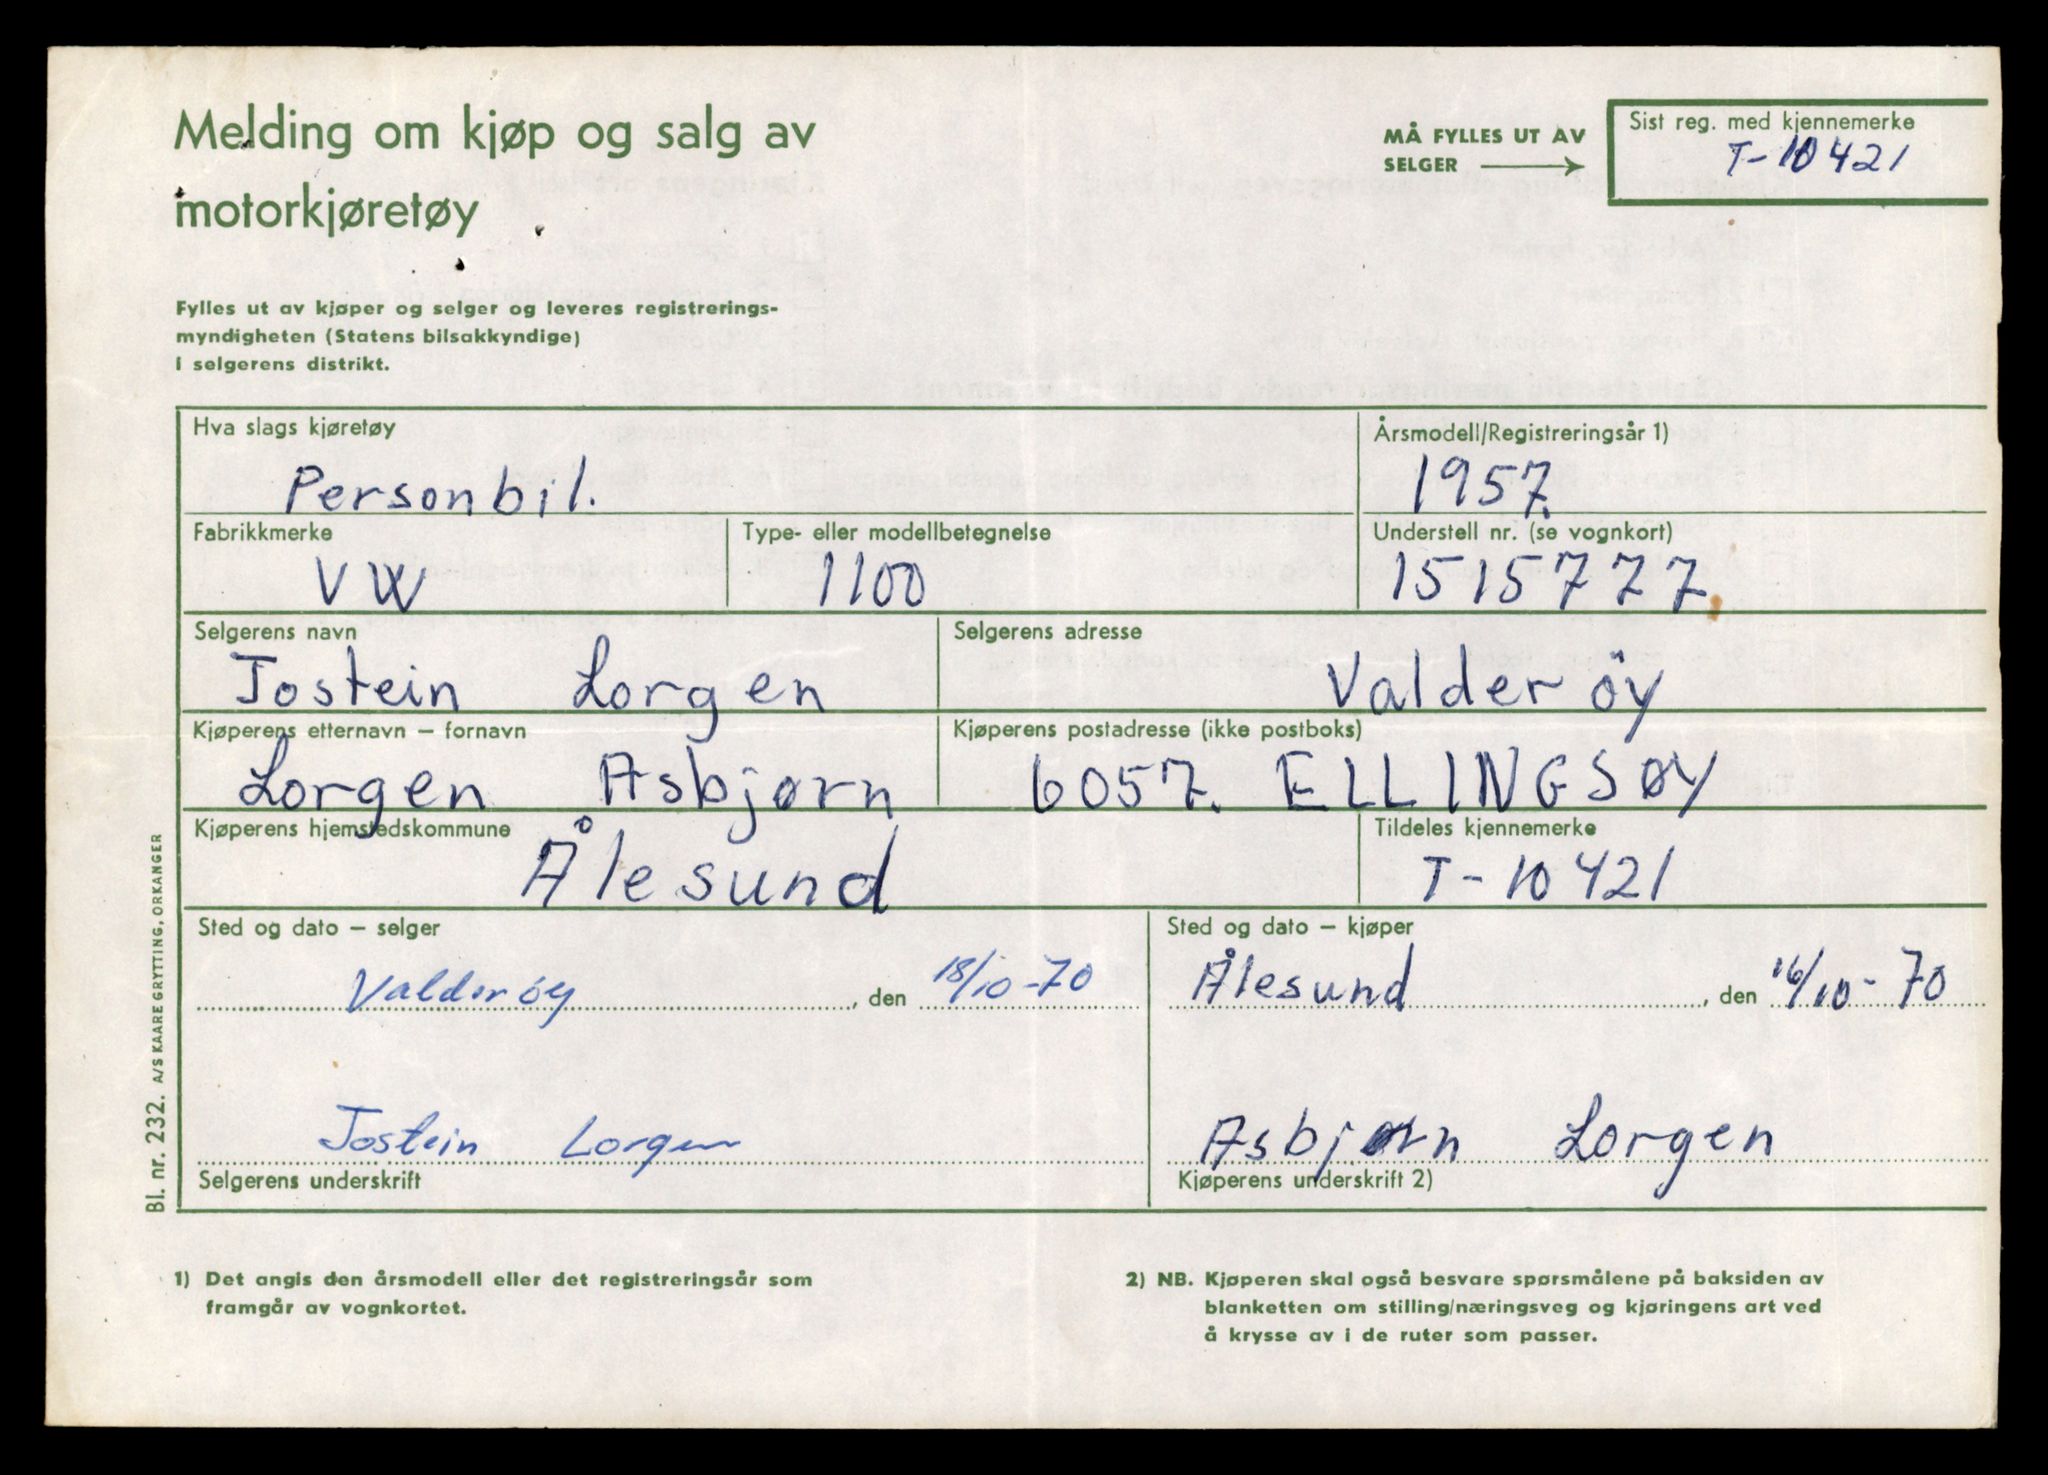 Melding om kjøp og salg av
motorkjøretøy
MÅ FYLLES UT AV
SELGER
Sist reg. med kjennemerke
T-10421
Fylles ut av kjøper og selger og leveres registrerings-
myndigheten (Statens bilsakkyndige)
i selgerens distrikt.
Hva slags kjøretøy
Personbil.
Årsmodell/Registreringsår 1)
1957.
Fabrikkmerke
VW
Type- eller modellbetegnelse
1100
Understell nr. (se vognkort)
1515777
Selgerens navn
Jostein Lorgen
Selgerens adresse
Valderöy
Kjøperens etternavn – fornavn
Lorgen Asbjørn
Kjøperens postadresse (ikke postboks)
6057. ELLINGSØY
Kjøperens hjemstedskommune
Ålesund
Tildeles kjennemerke
T-10421
Sted og dato – selger
Valderöy, den 18/10-70
Sted og dato – kjøper
Ålesund, den 16/10-70
Jostein Lorgen
Selgerens underskrift
Asbjørn Lorgen
Kjøperens underskrift 2)
Bl. nr. 232. A/S KAARE GRYTTING, ORKANGER
1) Det angis den årsmodell eller det registreringsår som
framgår av vognkortet.
2) NB. Kjøperen skal også besvare spørsmålene på baksiden av
blanketten om stilling/næringsveg og kjøringens art ved
å krysse av i de ruter som passer.